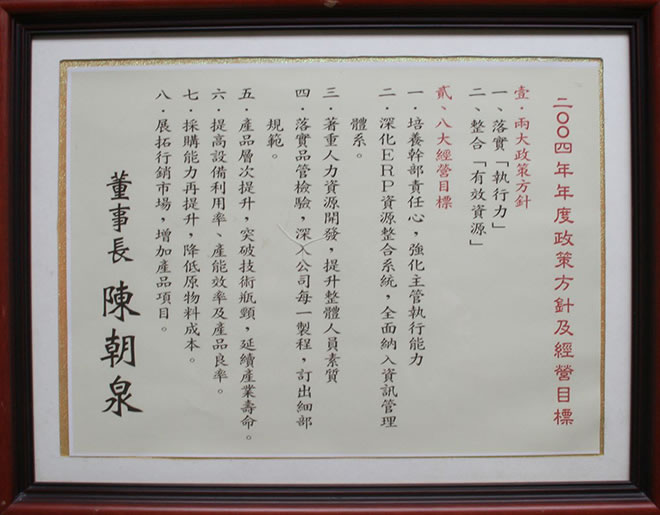 二〇〇四年年度政策方針及經營目標
壹．兩大政策方針
一、落實「執行力」
二、整合「有效資源」
貳、八大經營目標
一．培養幹部責任心，強化主管執行能力
二．深化ERP資源整合系統，全面納入資訊管理
體系。
三．著重人力資源開發，提升整體人員素質
四．落實品管檢驗，深入公司每一製程，訂出細部
規範。
五．產品層次提升，突破技術瓶頸，延續產業壽命。
六．提高設備利用率、產能效率及產品良率。
七．採購能力再提升，降低原物料成本。
八．展拓行銷市場，增加產品項目。
董事長 陳朝泉